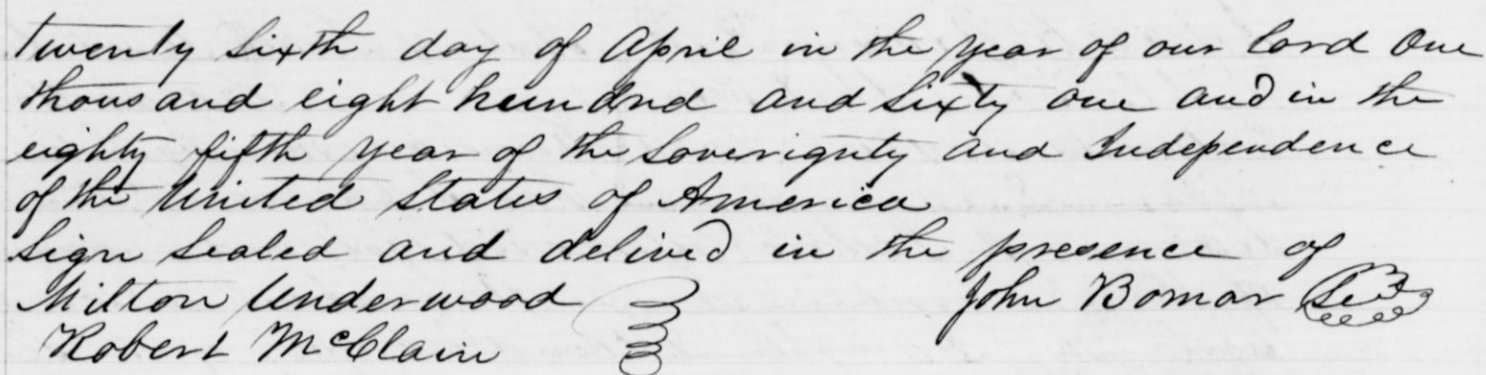 twenty sixth day of April in the year of our lord One
thousand eight hundred and sixty one and in the
eighty fifth year of the Soverignty and Independence
of the United States of America
Sign Sealed and delived in the presence of
Milton Underwood John Bomar
Robert McClain